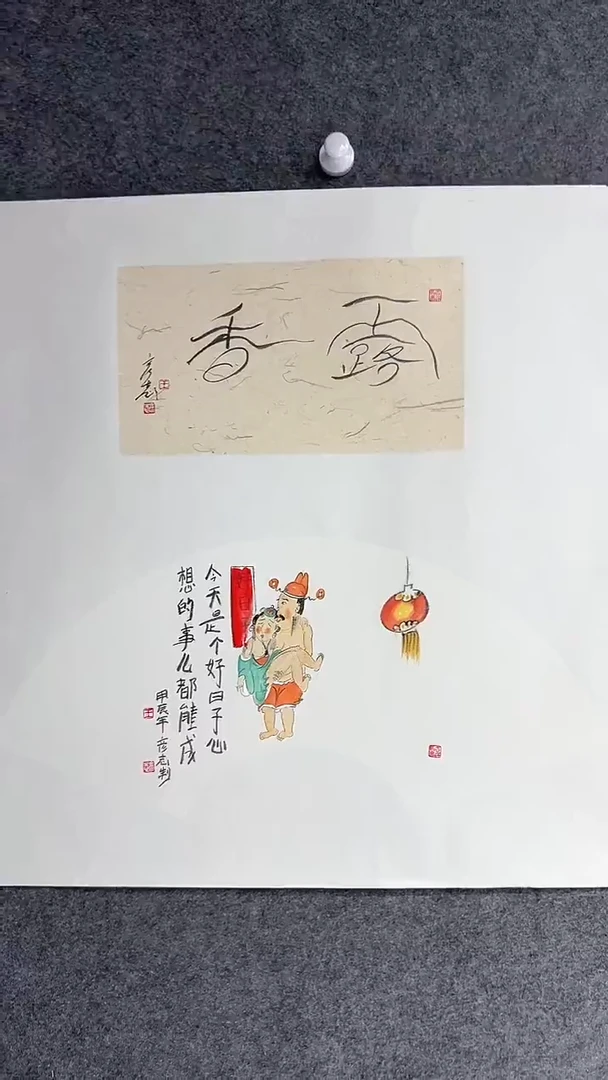 露香
彦志
今天是个好日子心
想的事么都能成
甲辰年彦志制